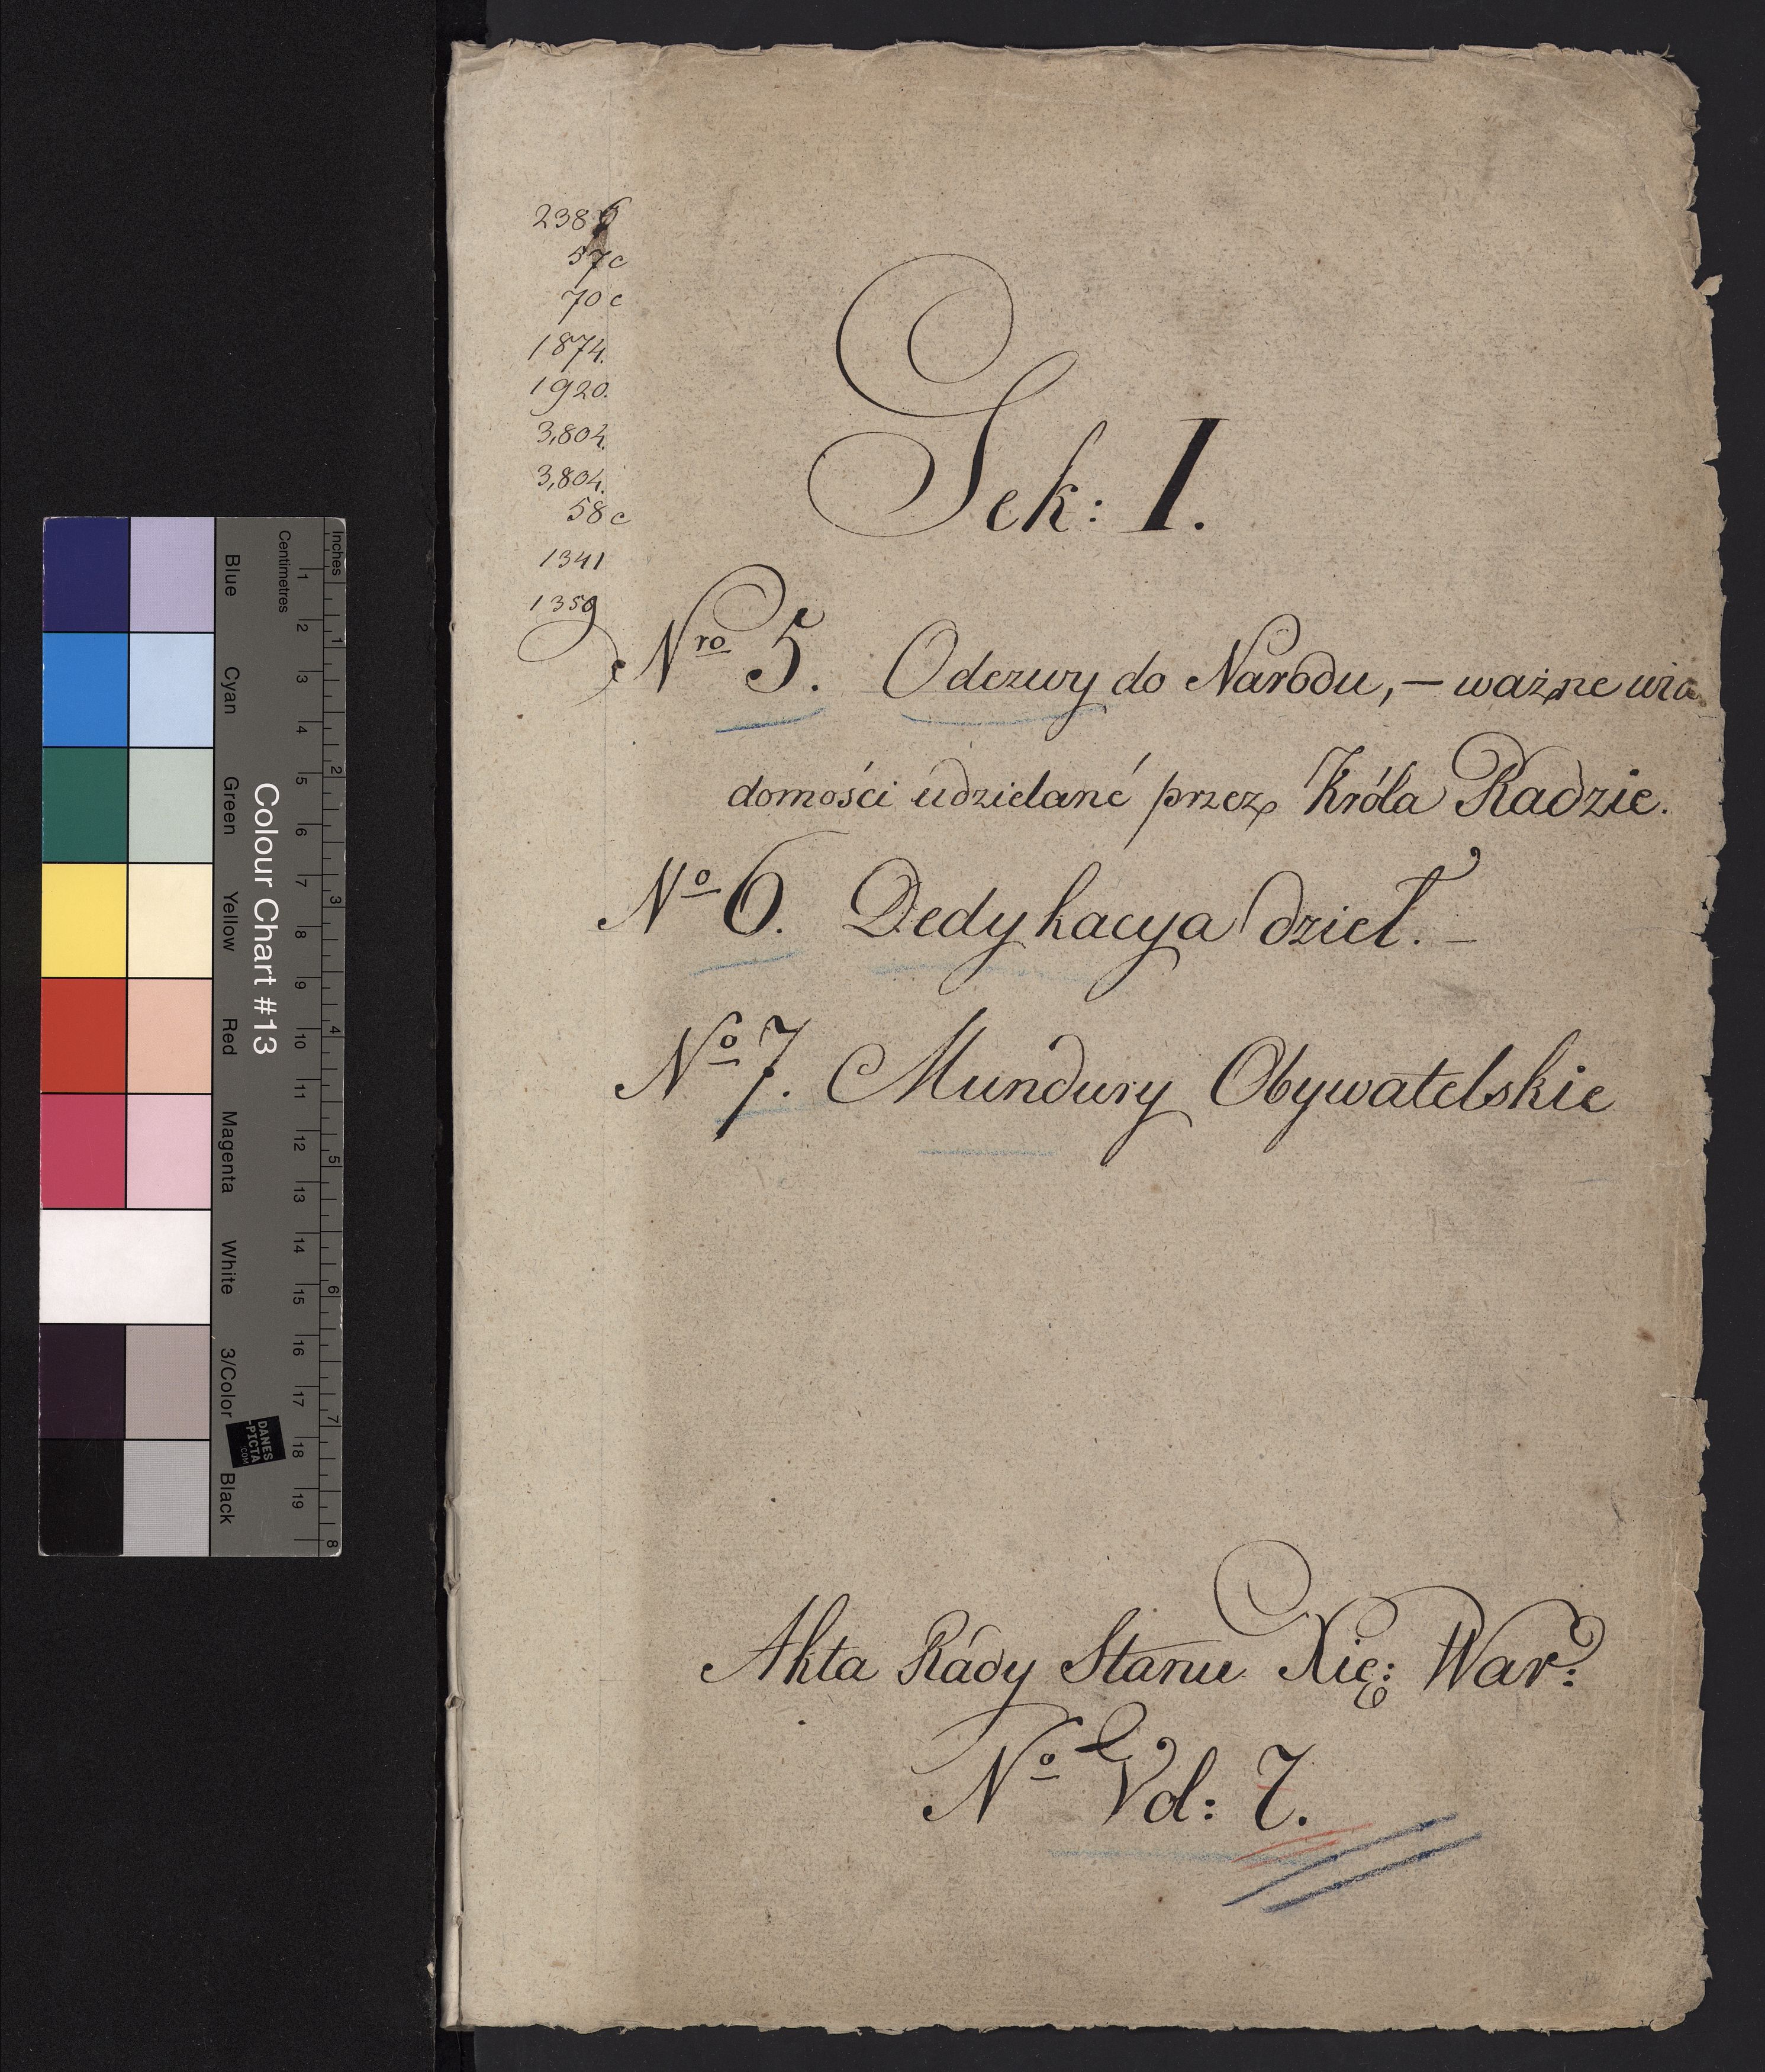 57c
70c
1874.
1920.
3,804.
3,804.
58c
1341
1359
Sek: I.
Nro 5. Odezwy do Narodu, – ważne wia
domości udzielané przez Króla Radzie.
No 6. Dedykacya dzieł. –
No 7. Mundury Obywatelskie
Akta Rády Stanu Xię: War:
No Vol: 7.
Colour Chart #13
Blue Cyan Green Yellow Red Magenta White 3/Color Black
Centimetres 1 2 3 4 5 6 7 8 9 10 11 12 13 14 15 16 17 18 19
Inches 1 2 3 4 5 6 7 8
DANES
-PICTA
.COM